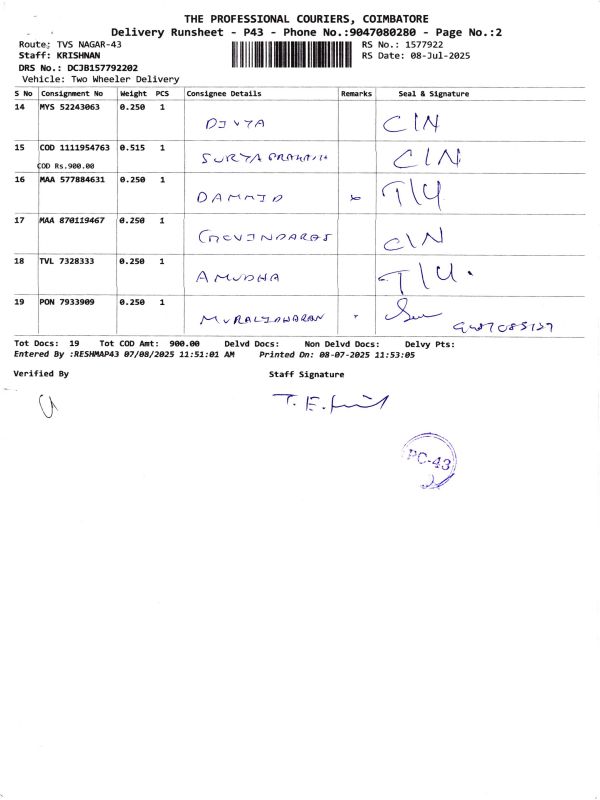 THE PROFESSIONAL COURIERS, COIMBATORE
Delivery Runsheet - P43 - Phone No.:9047080280 - Page No.:2
Route: TVS NAGAR-43 RS No.: 1577922
Staff: KRISHNAN RS Date: 08-Jul-2025
DRS No.: DCJB157792202
Vehicle: Two Wheeler Delivery
S No Consignment No Weight PCS Consignee Details Remarks Seal & Signature
14 MYS 52243063 0.250 1 DIVYA CIN
15 COD 1111954763 0.515 1 SURYAPRAKASH CIN
COD Rs.900.00
16 MAA 577884631 0.250 1 T/U
17 MAA 870119467 0.250 1 GOVINDARAJ CIN
18 TVL 7328333 0.250 1 AMUDHA T/U.
19 PON 7933909 0.250 1 MURALIDHARAN
Tot Docs: 19 Tot COD Amt: 900.00 Delvd Docs: Non Delvd Docs: Delvy Pts:
Entered By :RESHMAP43 07/08/2025 11:51:01 AM Printed On: 08-07-2025 11:53:05
Verified By Staff Signature
PC-43